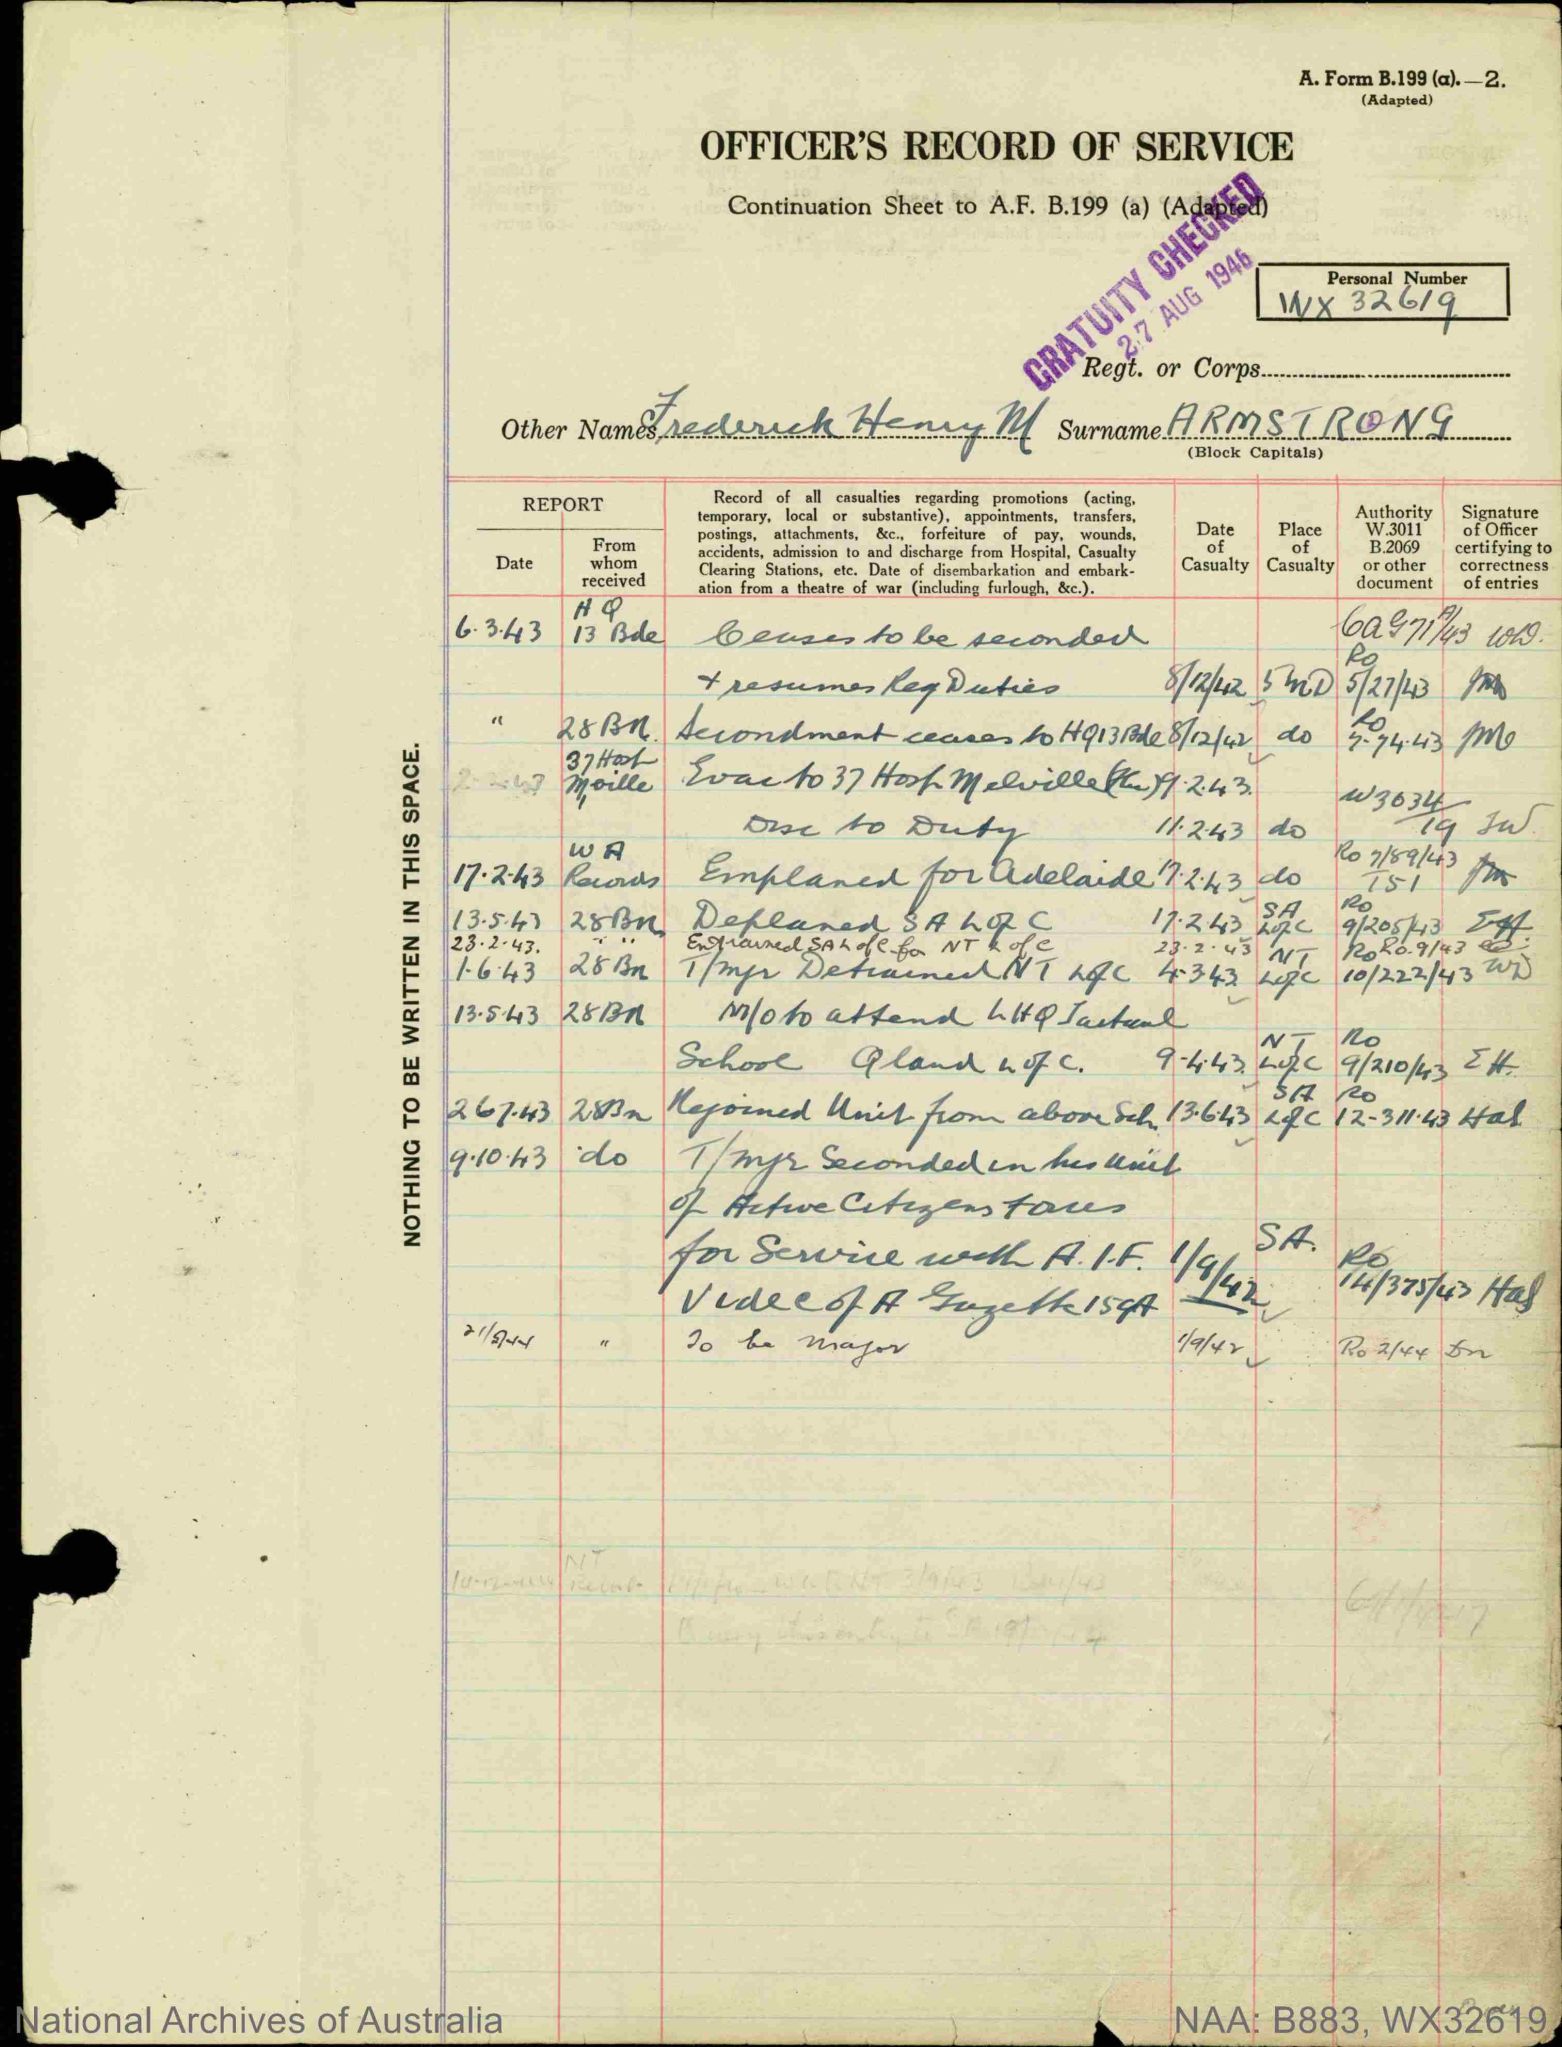 A. Form B.199 (a).—2.
(Adapted)
OFFICER'S RECORD OF SERVICE
Continuation Sheet to A.F. B.199 (a) (Adapted)
GRATUITY CHECKED
27 AUG 1946
Personal Number
WX 32619
Regt. or Corps
Other Names Frederick Henry M Surname ARMSTRONG
(Block Capitals)
NOTHING TO BE WRITTEN IN THIS SPACE.
REPORT
Date
From whom received
Record of all casualties regarding promotions (acting,
temporary, local or substantive), appointments, transfers,
postings, attachments, &c., forfeiture of pay, wounds,
accidents, admission to and discharge from Hospital, Casualty
Clearing Stations, etc. Date of disembarkation and embark-
ation from a theatre of war (including furlough, &c.).
Date of Casualty
Place of Casualty
Authority W.3011 B.2069 or other document
Signature of Officer certifying to correctness of entries
6.3.43 HQ 13 Bde Ceases to be seconded
+ resumes Reg Duties 8/12/42 5 MD Ro 5/27/43
" 28 BN. Secondment ceases to HQ 13 Bde 8/12/42 do Ro 7-74-43
37 Hosp M,ville Evac to 37 Hosp Melville 9.2.43. W3034
Disc to Duty 11.2.43 do 19
17.2.43 WA Records Emplaned for Adelaide 17.2.43 do Ro 7/89/43 151
13.5.43 28 Bn Deplaned SA L of C 17.2.43 SA L of C Ro 9/205/43
23.2.43. " " Entrained SA L of C for NT L of C 23.2.43 Ro 9/43
1.6.43 28 Bn T/Mjr Detrained NT L of C 4.3.43 NT L of C Ro 10/222/43
13.5.43 28 BN M/o to attend LHQ Tactical
School Qland L of C. 9.4.43 NT L of C Ro 9/210/43 EH.
26.7.43 28 Bn Rejoined Unit from above Sch 13.6.43 SA L of C Ro 12-311-43 Hal
9.10.43 do T/Mjr Seconded in his unit
of Active Citizens forces
for Service with A.I.F. 1/9/42 SA. Ro 14/375/43 Hal
Vide C of A Gazette 159A
" To be Major 1/9/42 Ro 2/44
National Archives of Australia
NAA: B883, WX32619